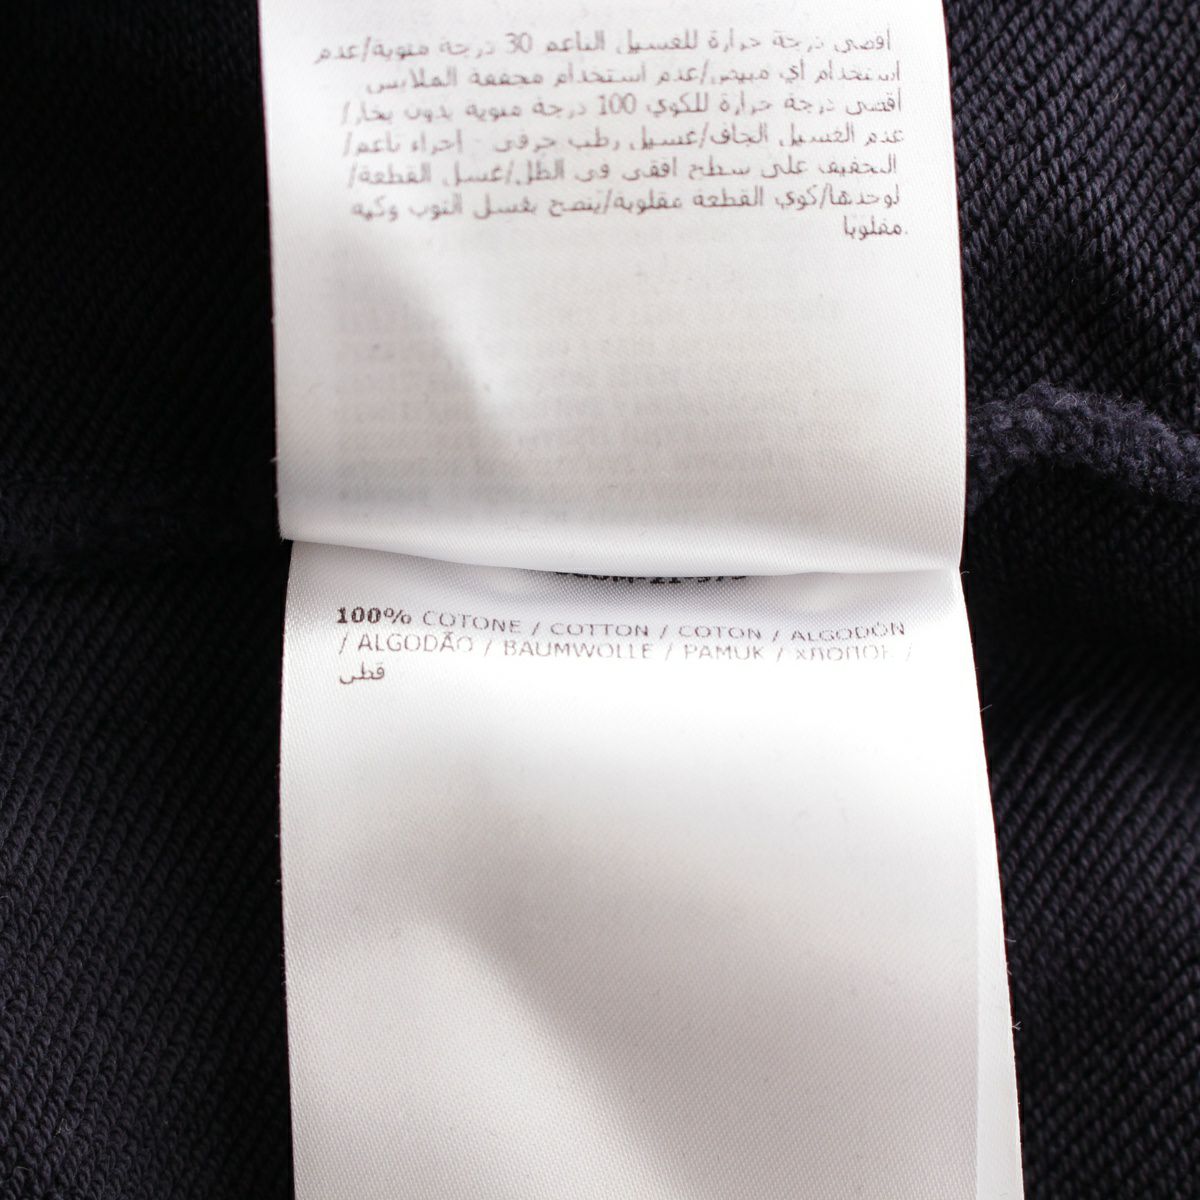 أقصى درجة حرارة للغسيل الناعم 30 درجة مئوية/عدم
استخدام أي مبيض/عدم استخدام مجففة الملابس
أقصى درجة حرارة للكوي 100 درجة مئوية بدون بخار/
عدم الغسيل الجاف/غسيل رطب حرفي - إجراء ناعم/
التجفيف على سطح افقي في الظل/غسل القطعة/
لوحدها/كوي القطعة مقلوبة/ينصح بغسل الثوب وكيه
مقلوبا.
100% COTONE / COTTON / COTON / ALGODÓN
/ ALGODÃO / BAUMWOLLE / PAMUK / ХЛОПОК /
قطن